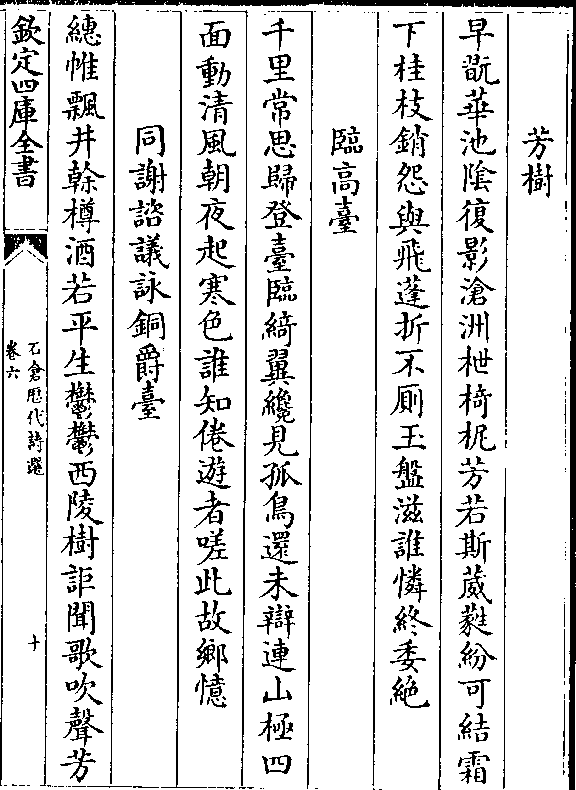 芳樹
早翫華池隂復影滄洲枻椅柅芳若斯葳蕤紛可結霜
下桂枝銷怨與飛蓬折不厠玉盤滋誰憐終委絶
臨髙臺
千里常思歸登臺臨綺翼纔見孤鳥還未辯連山極四
面動清風朝夜起寒色誰知倦遊者嗟此故鄉憶
同謝諮議詠銅爵臺
繐帷飄井榦樽酒若平生鬱鬱西陵樹詎聞歌吹聲芳
欽定四庫全書
石倉歴代詩選
卷六
十